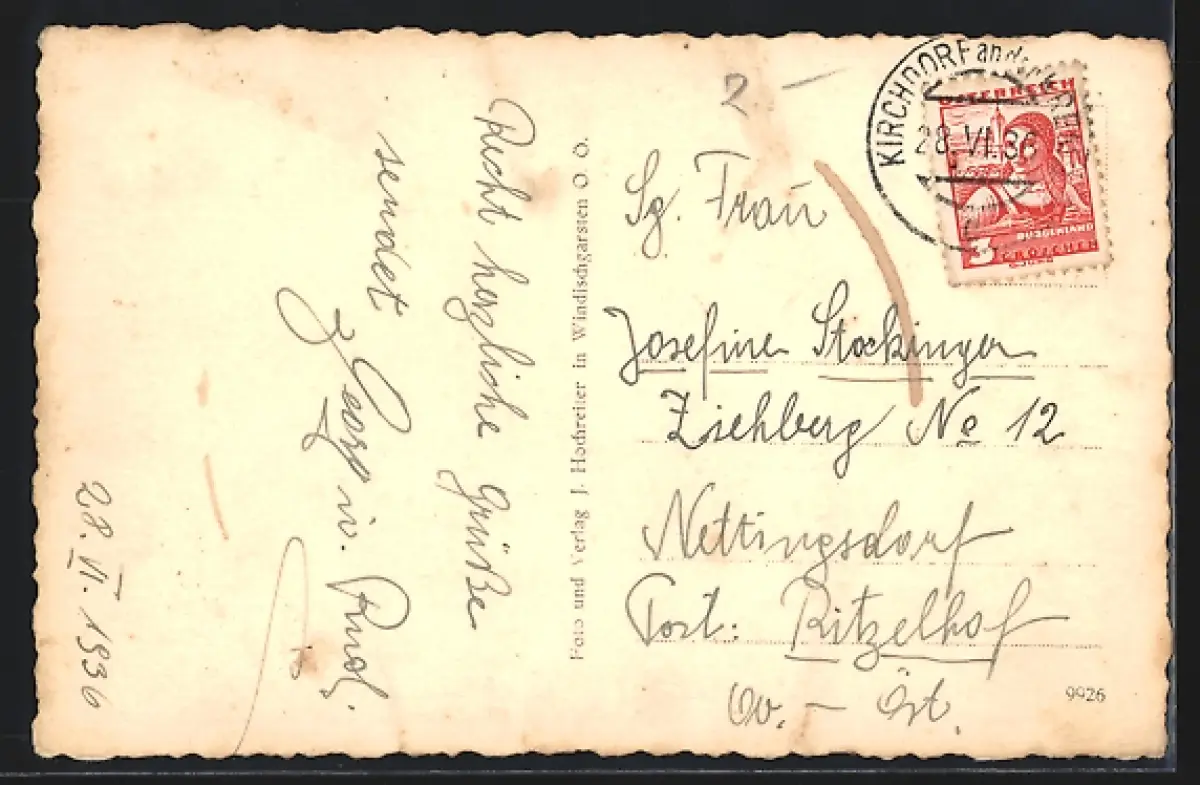 2 –
KIRCHDORF an der KREMS
28.VI.36
ÖSTERREICH
BURGENLAND
3 GROSCHEN
Recht herzliche Grüße
sendet
u. Rud.
28. VI. 1936
Foto und Verlag J. Hochreiter in Windischgarsten O. Ö.
Sg. Frau
Josefine Stockinger
Ziehberg No 12
Nettingsdorf
Post: Ritzelhof
Ob. – Öst.
9926